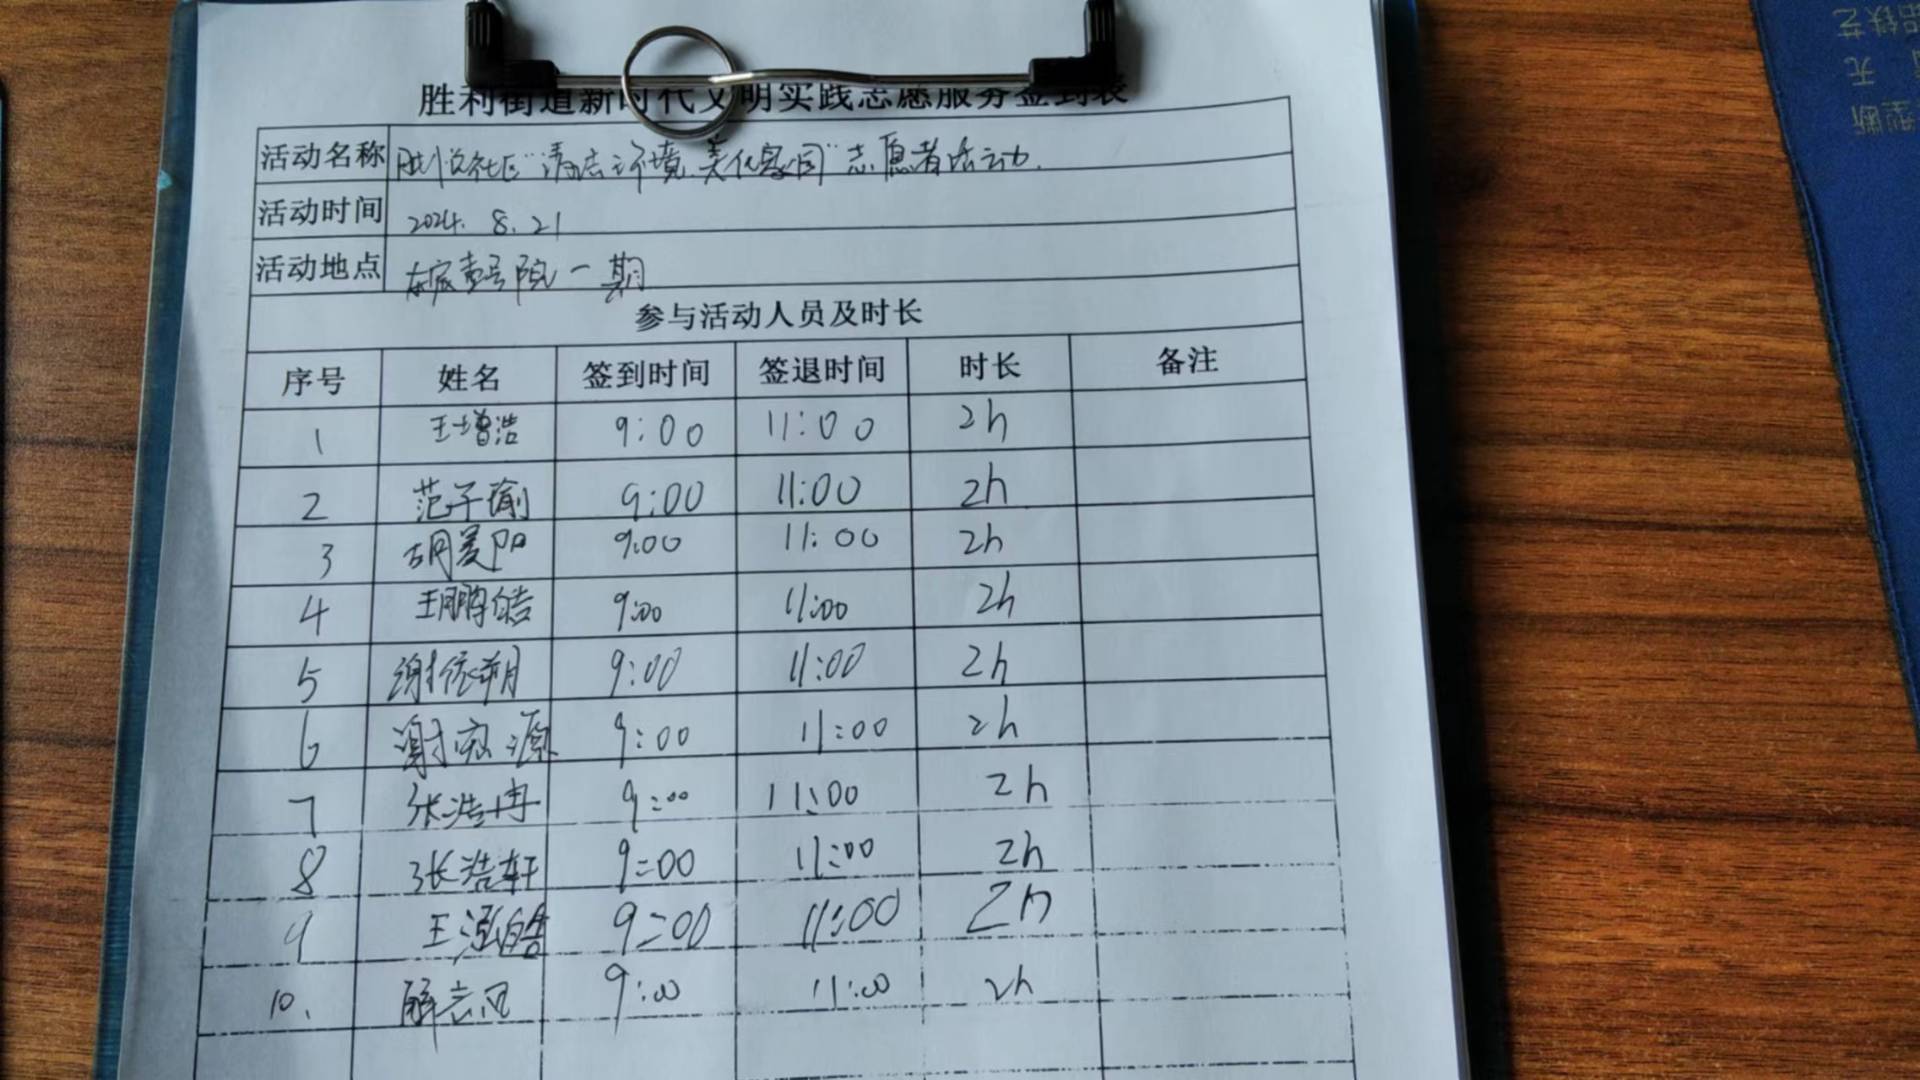 胜利街道新时代文明实践志愿服务签到表
活动名称 社区"清洁环境,美化家园"志愿者活动.
活动时间 2024. 8. 21
活动地点 壹号院一期
参与活动人员及时长
序号 姓名 签到时间 签退时间 时长 备注
1 王增浩 9:00 11:00 2h
2 范子瑜 9:00 11:00 2h
3 胡夏阳 9:00 11:00 2h
4 王鹏皓 9:00 11:00 2h
5 谢依朔 9:00 11:00 2h
6 谢 源 9:00 11:00 2h
7 张浩冉 9:00 11:00 2h
8 张浩轩 9:00 11:00 2h
9 王泓皓 9:00 11:00 2h
10. 解志 9:00 11:00 2h
铝铁艺
无
断